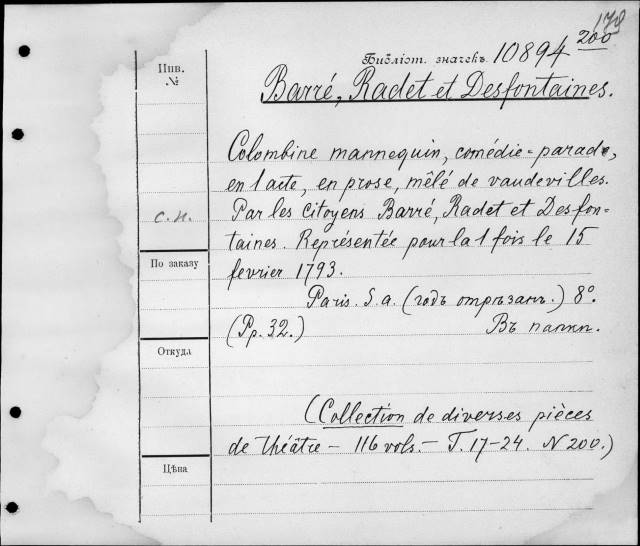 179
200
Библіот. значекъ 10894
Инв.
№
Barré, Radet et Desfontaines.
Colombine mannequin, comédie=parade,
en 1 acte, en prose, mêlé de vaudevilles.
с.н. Par les citoyens Barré, Radet et Desfon=
taines. Représentée pour la 1 fois le 15
По заказу
fevrier 1793.
Paris. S.a. (годъ отрѣзанъ.) 8º.
(Pp. 32.) Въ папк.
Откуда
(Collection de diverses pièces
de théâtre — 116 vols. — T. 17–24. N 200.)
Цѣна